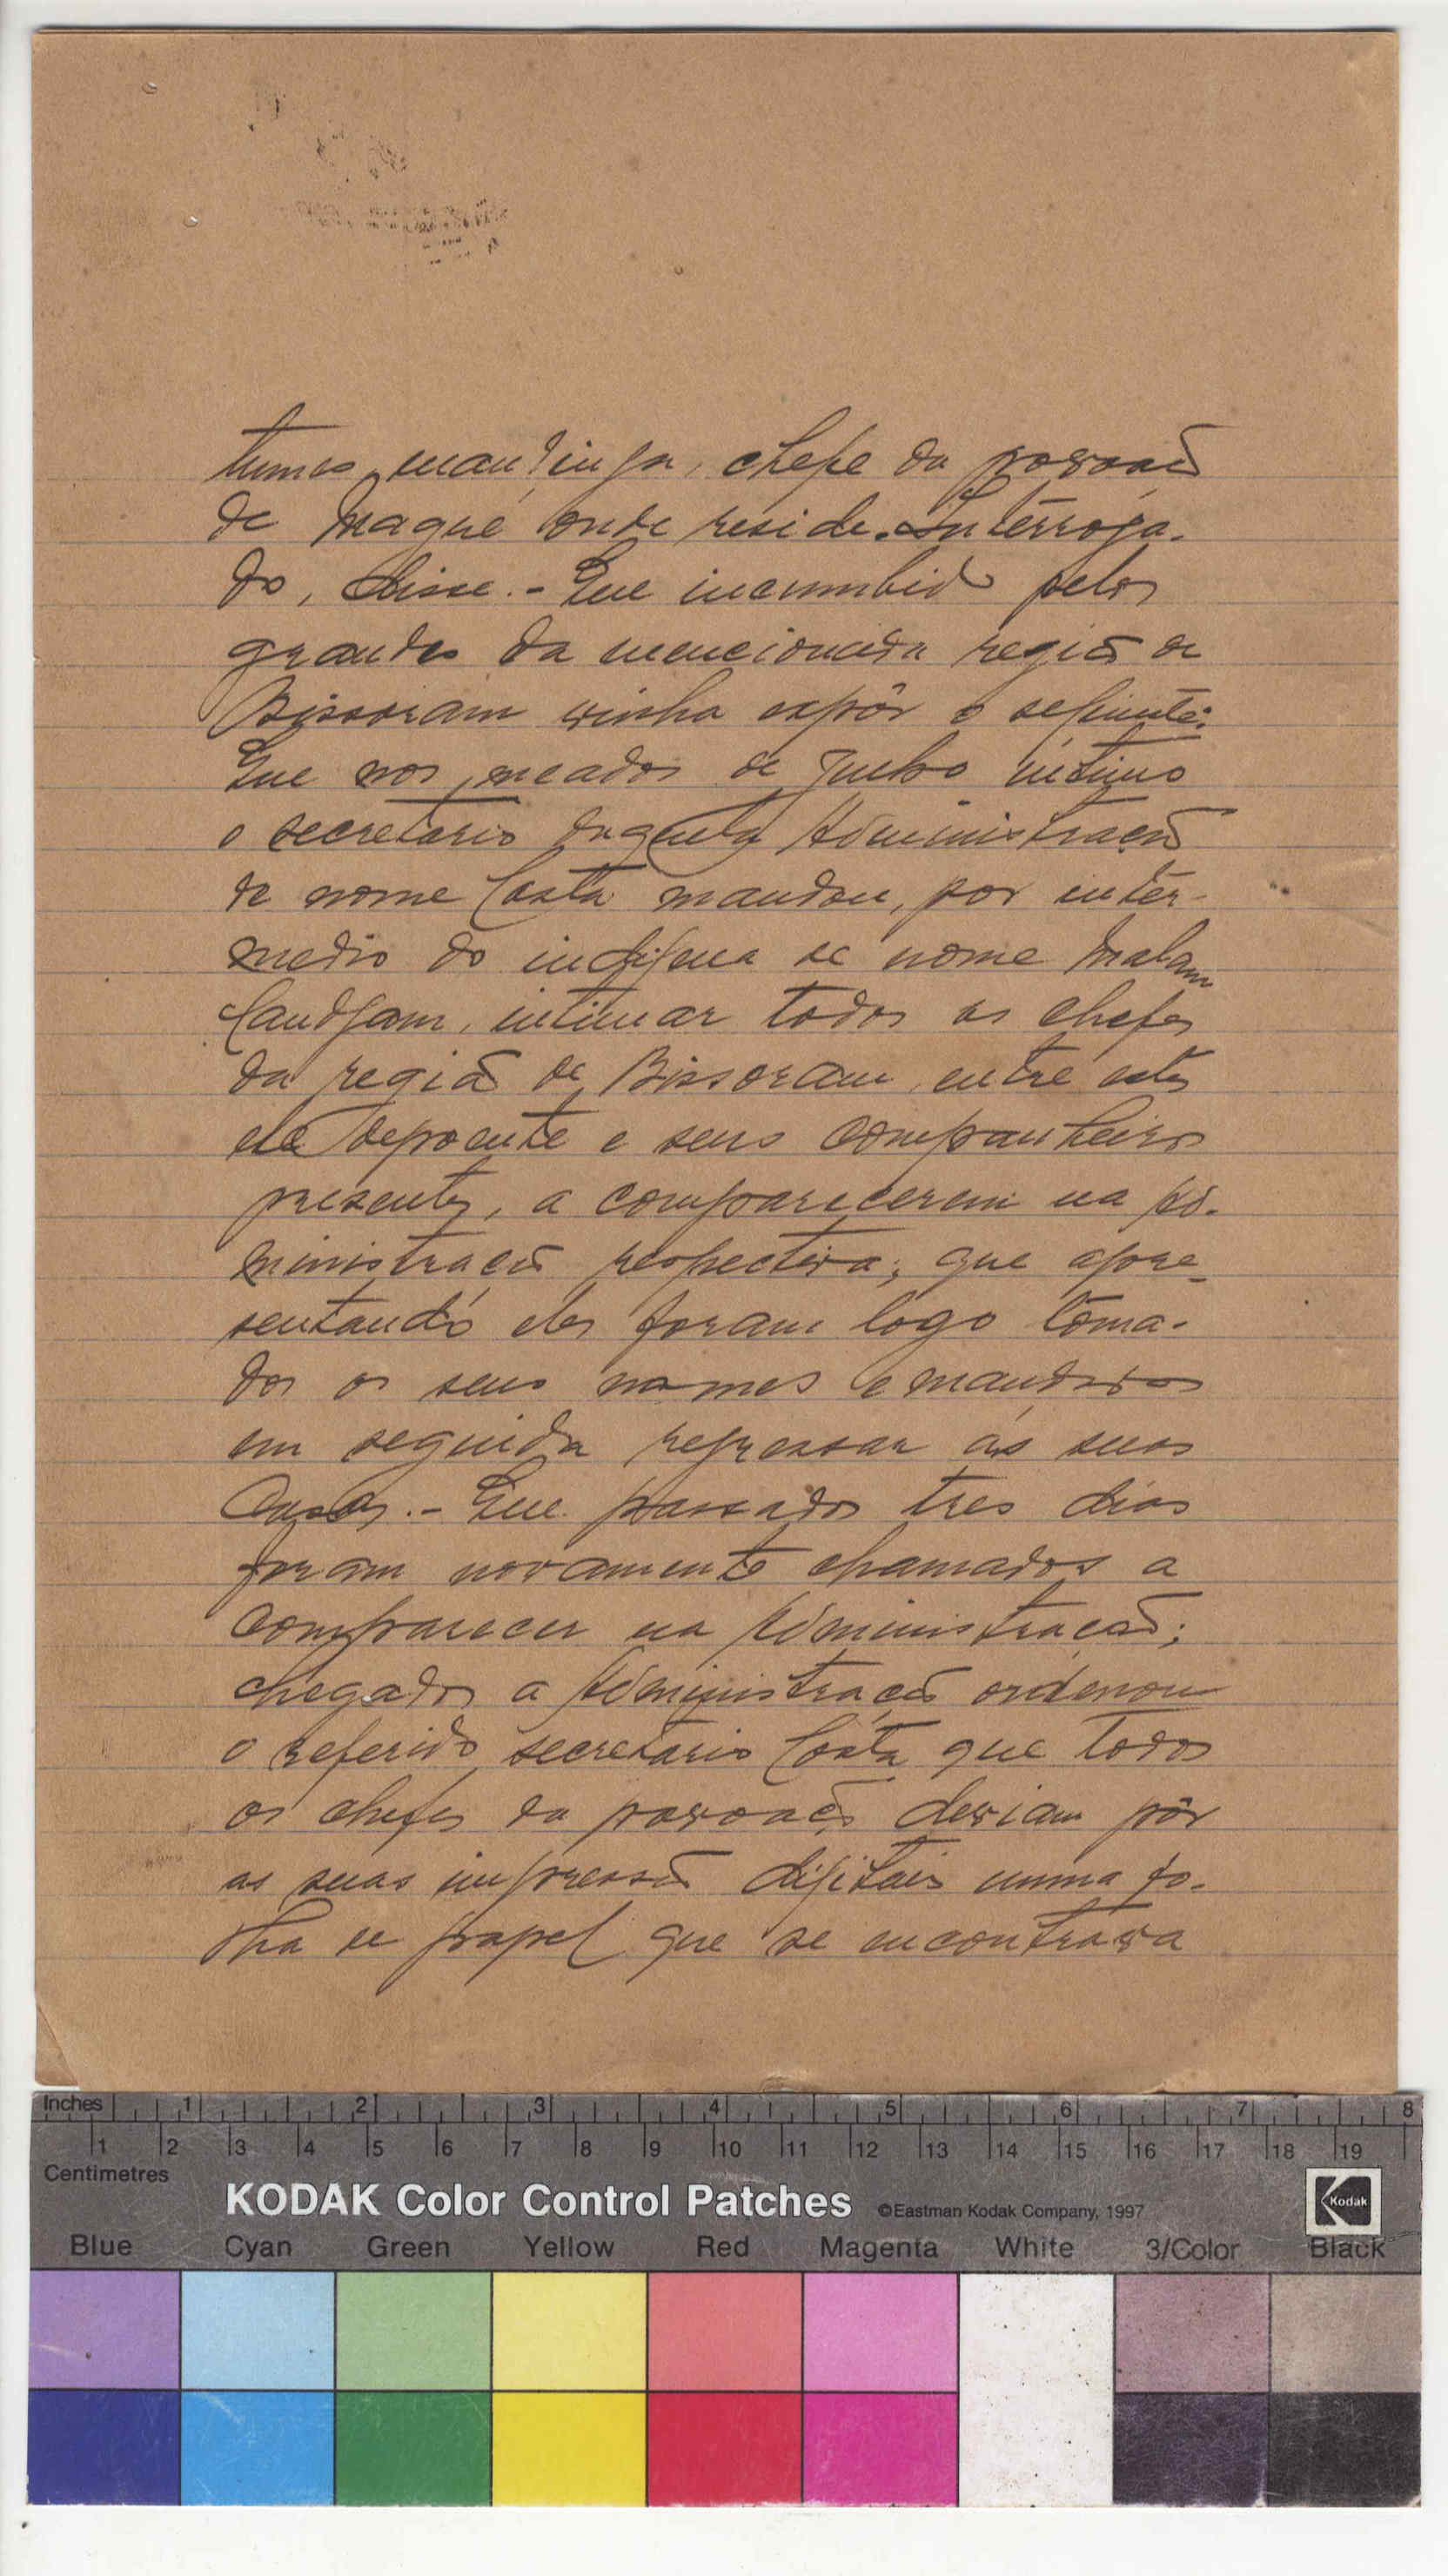 tumes mandinga, chefe da povoação
de Maqué onde reside. Interroga-
do, disse.- Que incumbido pelos
grandes da mencionada região de
Bissoram vinha expôr o seguinte:
Que nos meados de Junho ultimo
o secretario daquela Administração
de nome Costa mandou, por inter-
medio do indigena de nome Malam
intimar todos os chefes
da região de Bissoram, entre estes
ele depoente e seus companheiros
presentes, a comparecerem na Ad-
ministração respectiva; que apre-
sentando eles foram logo toma-
dos os seus nomes e mandados
em seguida regressar ás suas
Casas.- Que passados tres dias
foram novamente chamados a
comparecer na Administração;
chegados a Administração ordenou
o referido secretario Costa que todos
os chefes da povoação deviam pôr
as suas impressões digitais numa fo-
lha de papel que se encontrava
Inches 1 2 3 4 5 6 7 8
1 2 3 4 5 6 7 8 9 10 11 12 13 14 15 16 17 18 19
Centimetres
KODAK Color Control Patches ©Eastman Kodak Company, 1997 Kodak
Blue Cyan Green Yellow Red Magenta White 3/Color Black